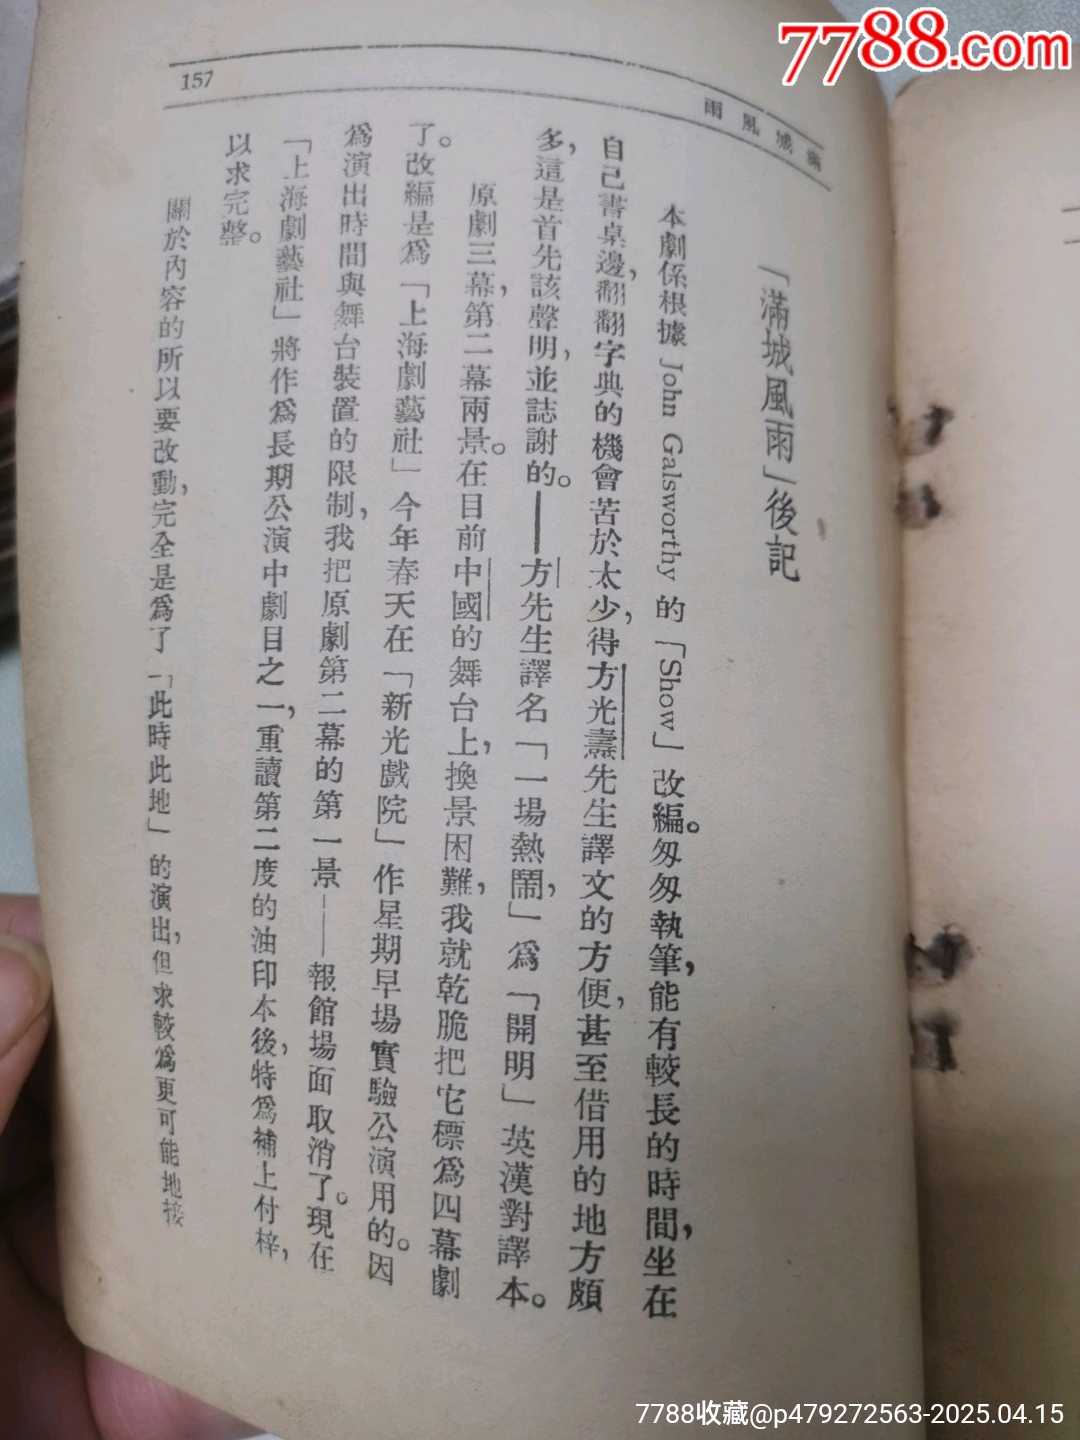 7788.com
157
滿城風雨
「滿城風雨」後記
本劇係根據 John Galsworthy 的「Show」改編。匆匆執筆，能有較長的時間，坐在
自己書桌邊，翻翻字典的機會苦於太少，得方光燾先生譯文的方便，甚至借用的地方頗
多，這是首先該聲明，並誌謝的。——方先生譯名「一場熱鬧，」爲「開明」英漢對譯本。
原劇三幕，第二幕兩景。在目前中國的舞台上，換景困難，我就乾脆把它標爲四幕劇
了。改編是爲「上海劇藝社」今年春天在「新光戲院」作星期早場實驗公演用的。因
爲演出時間與舞台裝置的限制，我把原劇第二幕的第一景——報館場面取消了。現在
「上海劇藝社」將作爲長期公演中劇目之一，重讀第二度的油印本後，特爲補上付梓，
以求完整。
關於內容的所以要改動，完全是爲了「此時此地」的演出，但求較爲更可能地接
7788收藏@p479272563-2025.04.15